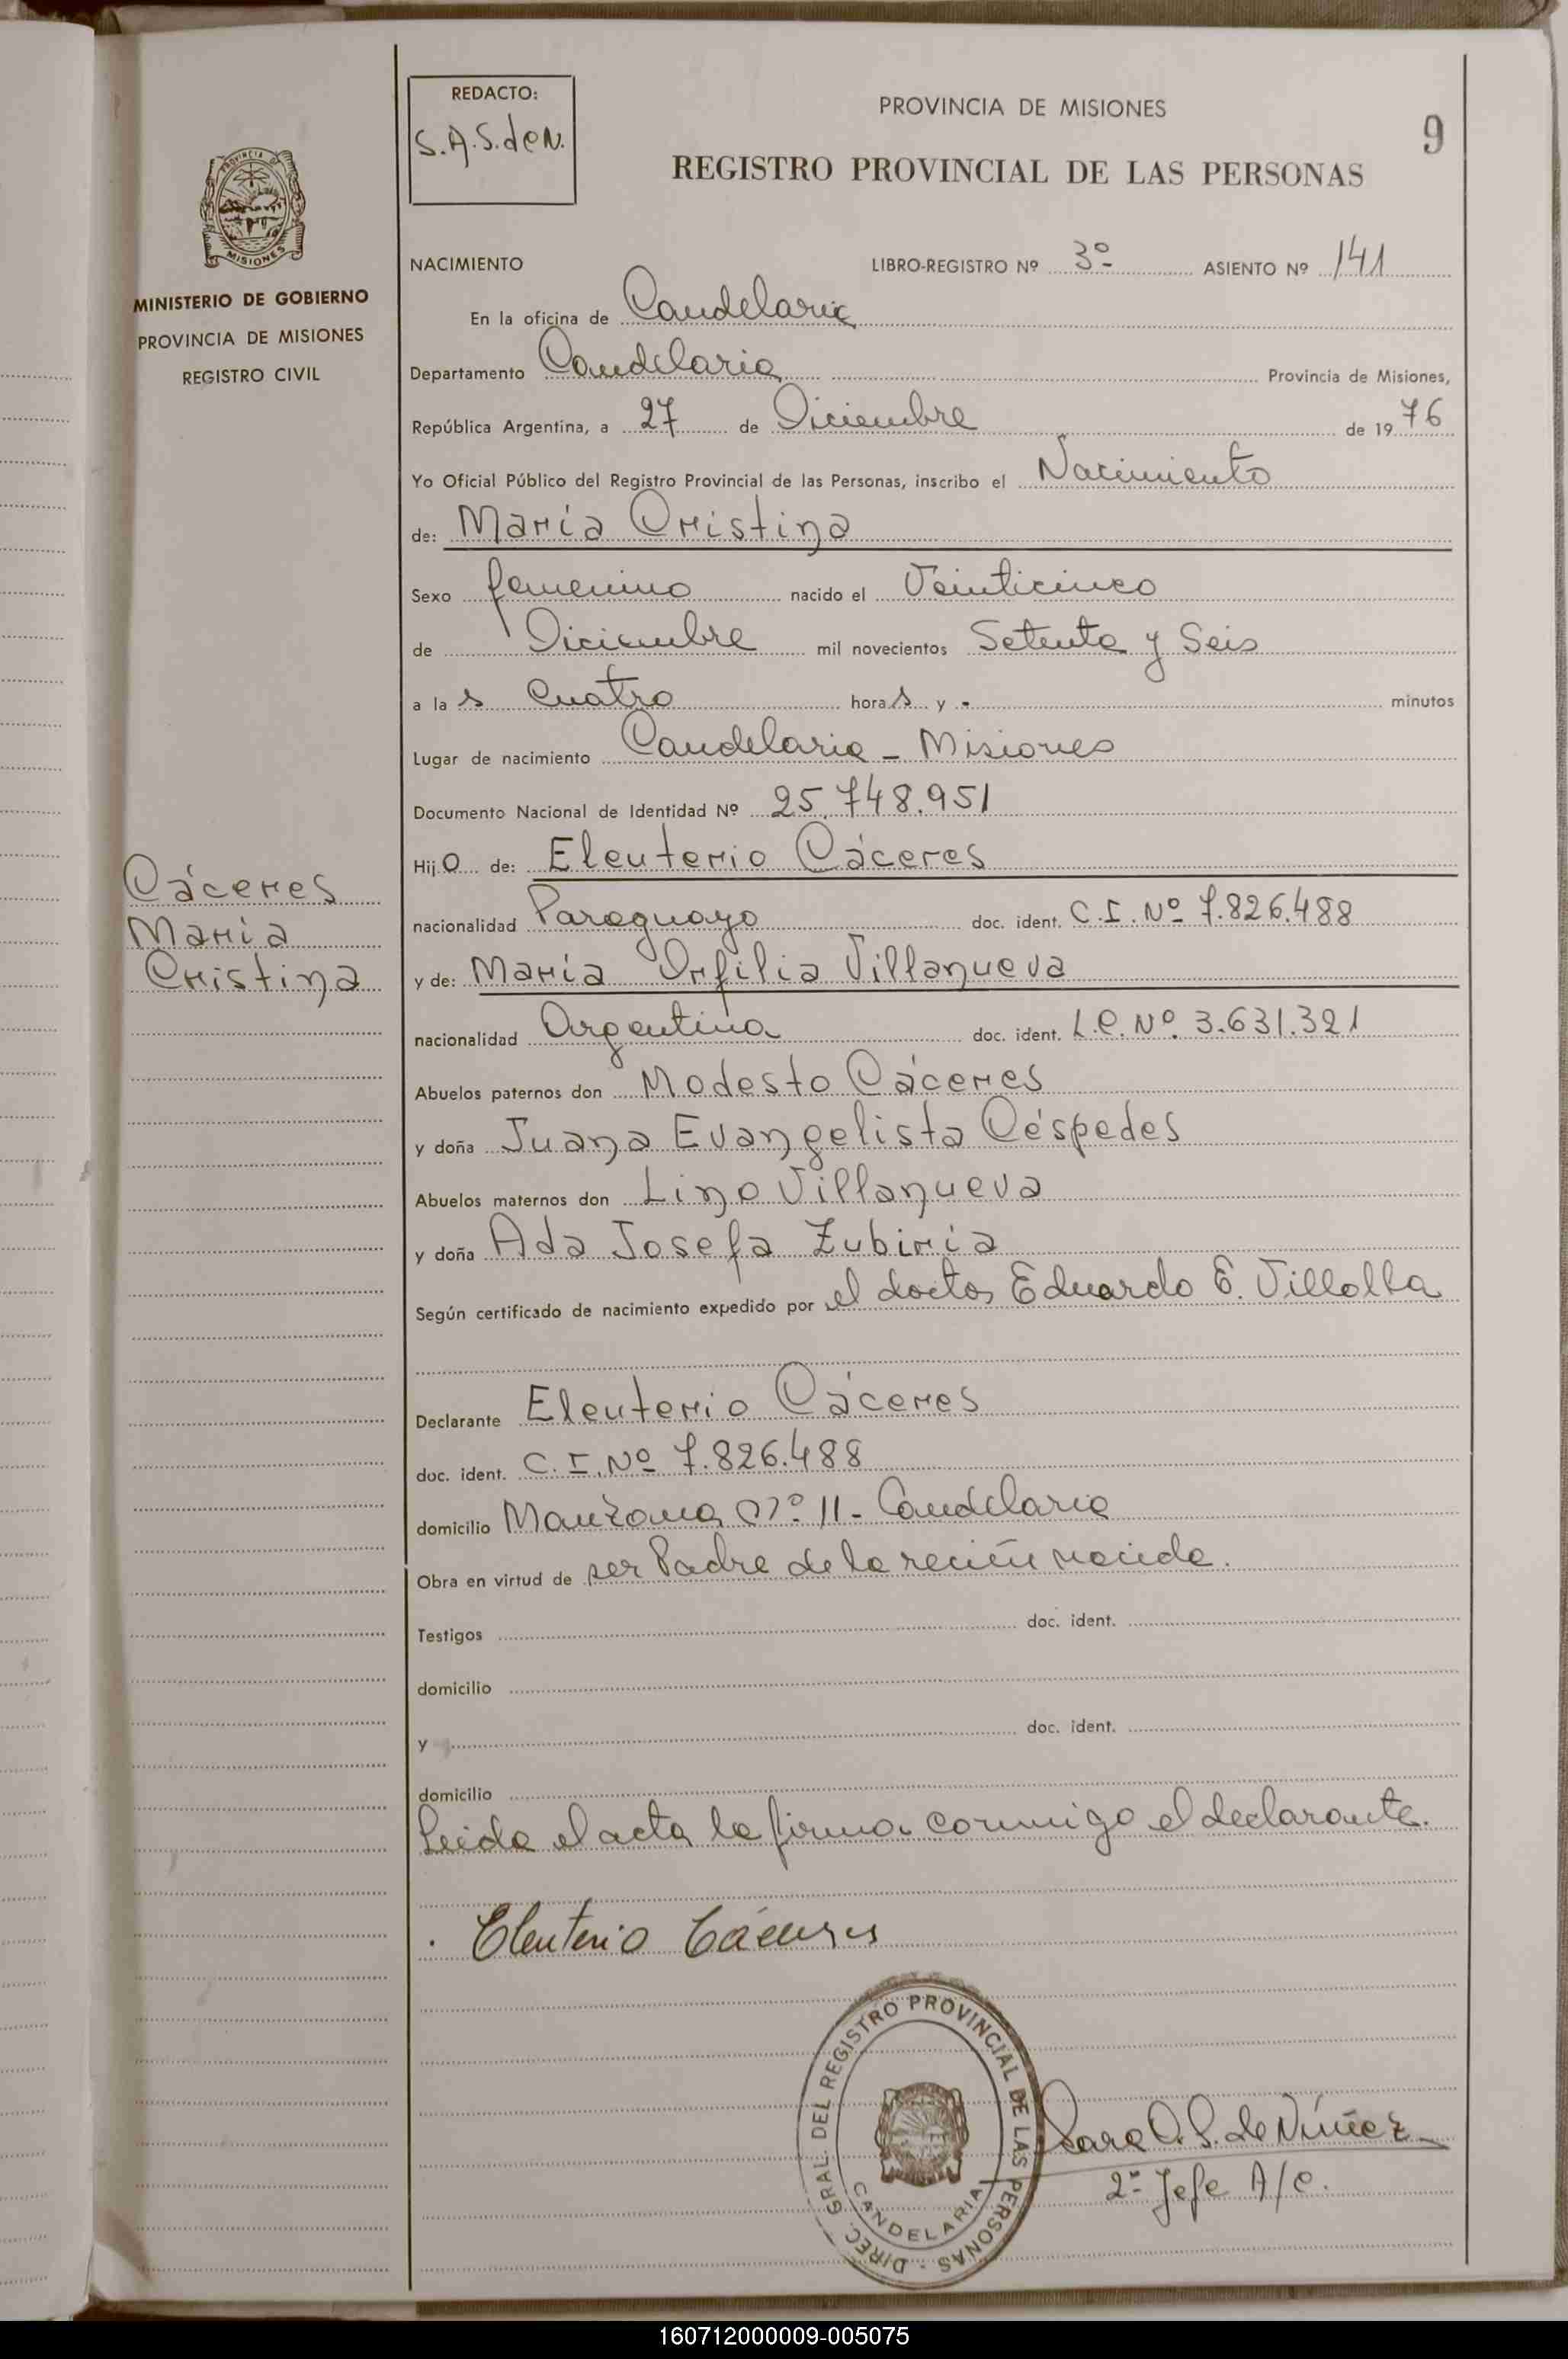 REDACTO:
S.A.S.deN.
PROVINCIA DE MISIONES
9
REGISTRO PROVINCIAL DE LAS PERSONAS
PROVINCIA DE
MISIONES
MINISTERIO DE GOBIERNO
PROVINCIA DE MISIONES
REGISTRO CIVIL
NACIMIENTO LIBRO-REGISTRO Nº 3º ASIENTO Nº 141
En la oficina de Candelaria
Departamento Candelaria Provincia de Misiones,
República Argentina, a 27 de Diciembre de 1976
Yo Oficial Público del Registro Provincial de las Personas, inscribo el Nacimiento
de: María Cristina
Sexo femenino nacido el Veinticinco
de Diciembre mil novecientos Setenta y Seis
a las cuatro horas y - minutos
Lugar de nacimiento Candelaria - Misiones
Documento Nacional de Identidad Nº 25.748.951
Hijo de: Eleuterio Cáceres
Cáceres
María
Cristina
nacionalidad Paraguayo doc. ident. C.I. Nº 7.826.488
y de: María Orfilia Villanueva
nacionalidad Argentina doc. ident. L.C. Nº 3.631.321
Abuelos paternos don Modesto Cáceres
y doña Juana Evangelista Céspedes
Abuelos maternos don Lino Villanueva
y doña Ada Josefa Zubiría
Según certificado de nacimiento expedido por el doctor Eduardo E. Villalba
Declarante Eleuterio Cáceres
doc. ident. C.I. Nº 7.826.488
domicilio Manzana nº 11 - Candelaria
Obra en virtud de ser Padre de la recién nacida.
Testigos doc. ident.
domicilio
y doc. ident.
domicilio
Leída el acta la firma conmigo el declarante.
Eleuterio Cáceres
DIREC. GRAL. DEL REGISTRO PROVINCIAL DE LAS PERSONAS
CANDELARIA
Sara A. S. de Núñez
2º Jefe A/C.
160712000009-005075